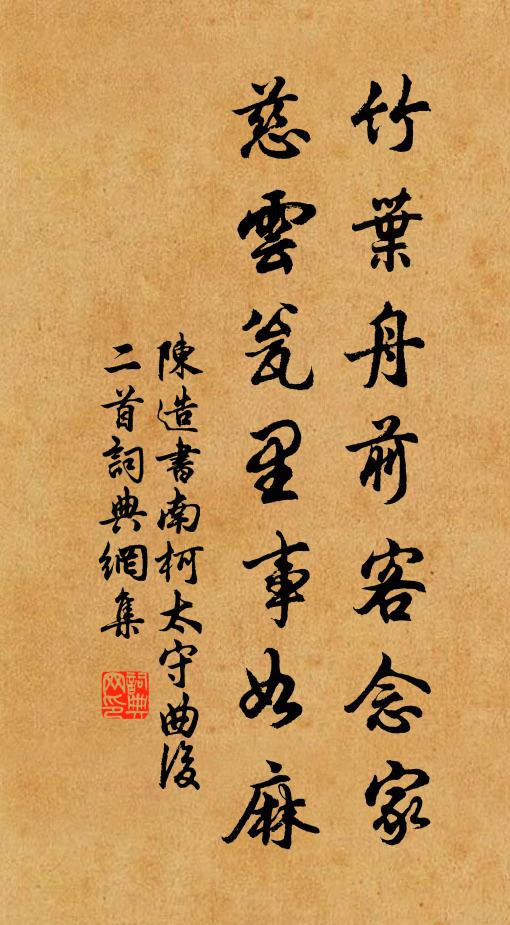 竹葉舟前客念家
慈雲瓮里事如麻
陳造書南柯太守曲後
二首詞典網集
詞典网印